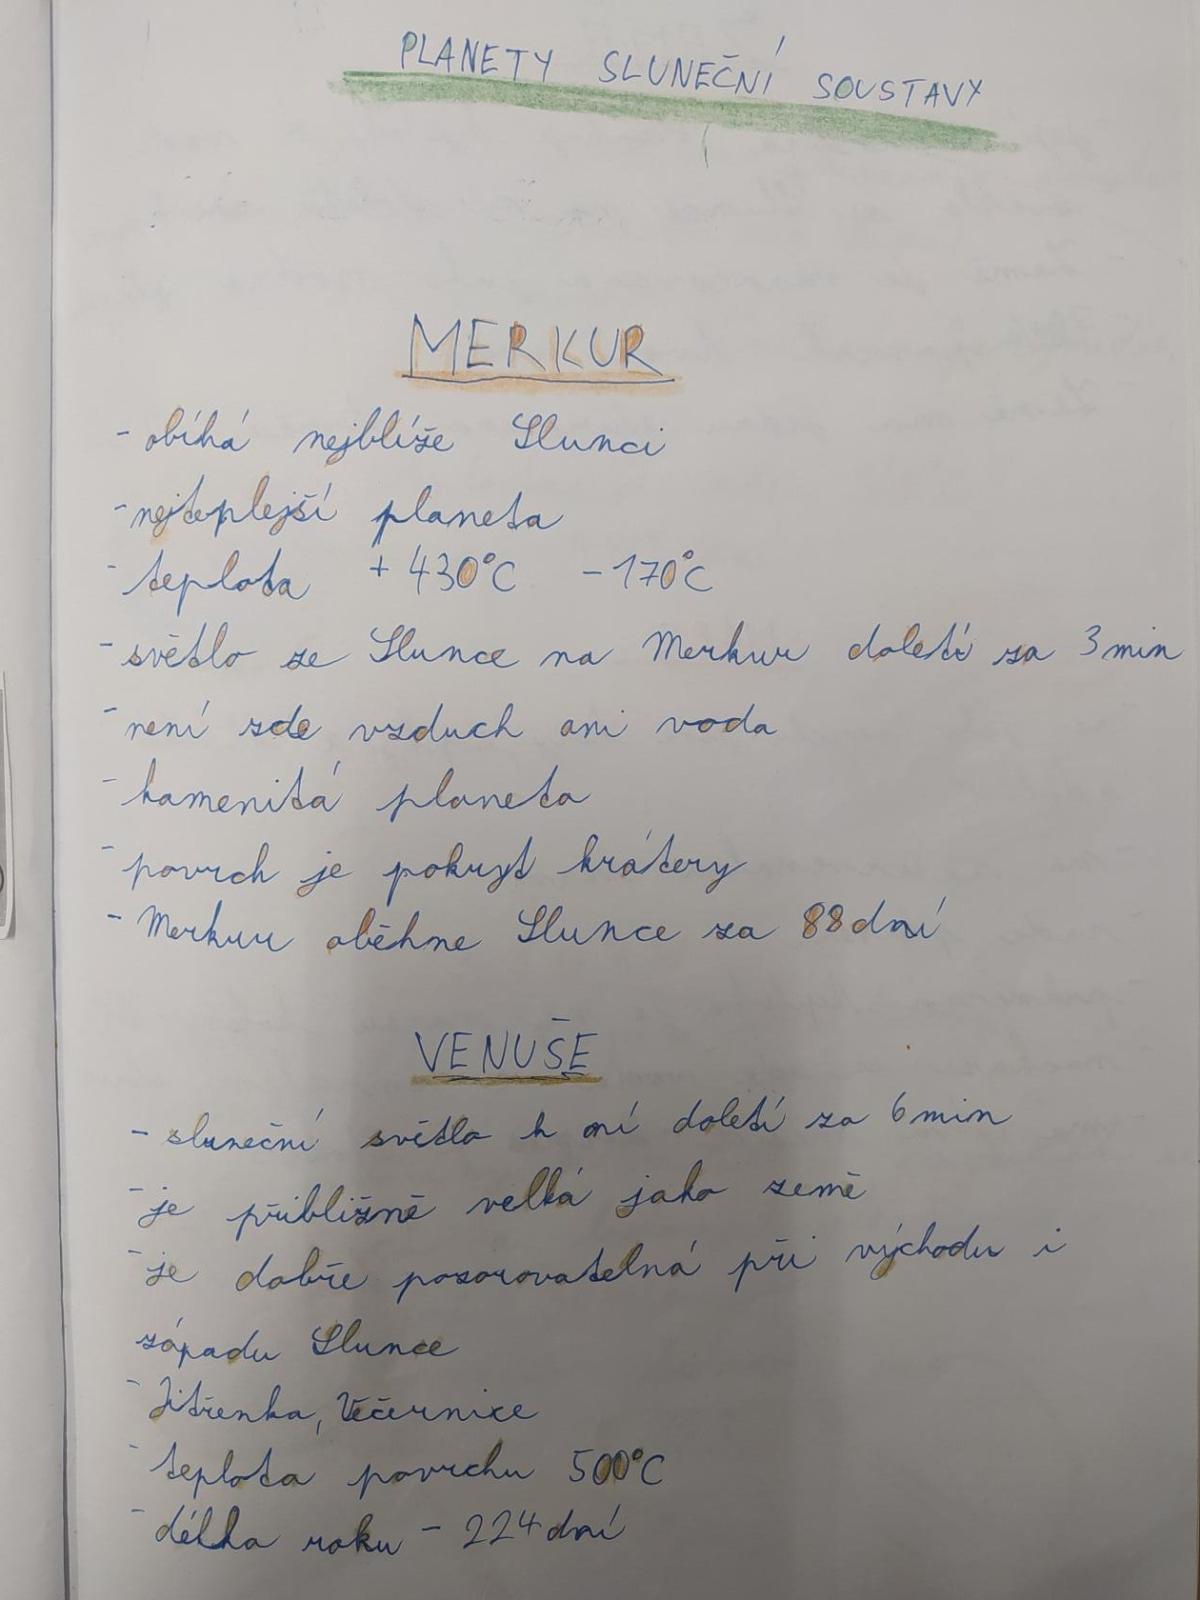 PLANETY SLUNEČNÍ SOUSTAVY
MERKUR
- obíhá nejblíže Slunci
- nejteplejší planeta
- teplota +430°C -170°C
- světlo ze Slunce na Merkur doletí za 3min
- není zde vzduch ani voda
- kamenitá planeta
- povrch je pokryt krátery
- Merkur oběhne Slunce za 88dní
VENUŠE
- sluneční světlo k ní doletí za 6min
- je přibližně velká jako země
- je dobře pozorovatelná při východu i
západu Slunce
- Jitřenka, Večernice
- teplota povrchu 500°C
- délka roku - 224dní